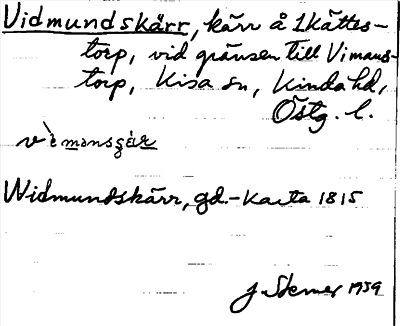 Vidmundskärr, kärr å Kättes-
torp, vid gränsen till Vimans-
torp, Kisa sn, Kinda hd,
Östg. l.
Widmundskärr, gd. - Karta 1815
J. Stemer 1959